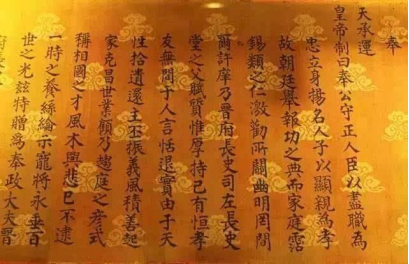 奉
天承運
皇帝制曰奉公守正人臣以盡職為
忠立身揚名人子以顯親為孝
故朝廷舉報功之典而家庭露
錫類之仁激勸所關幽明罔間
爾許摩乃晉府長史司左長史
堂之父賦質惟厚持己有恒孝
友無間于人言恬退實由于天
性拾遺還主丕振義風積善起
家克昌世業頎乃趨庭之彥式
稱相國之才風木興悲已不逮
一時之養絲綸示寵將永垂百
世之光兹特贈為奉政大夫晉